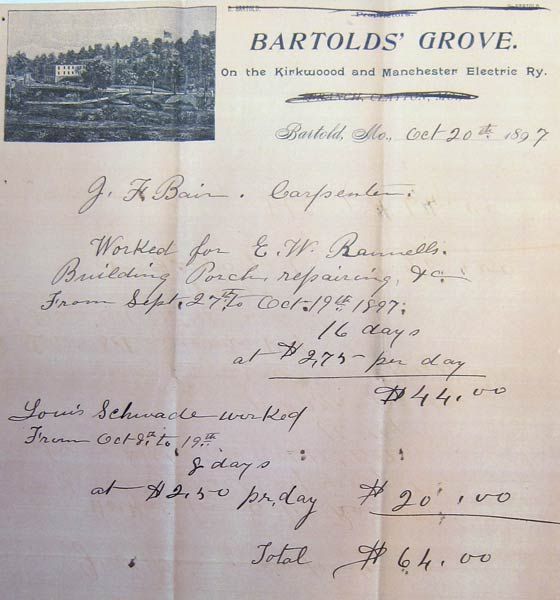 E. BARTOLD.
Proprietors.
BARTOLDS' GROVE.
On the Kirkwoood and Manchester Electric Ry.
BRANCH, CLAYTON, MO.
Bartold, Mo., Oct 20th 1897
J. F. Bair. Carpenter.
Worked for E. W. Rannells.
Building Porch, repairing, &c.
From Sept. 27th to Oct. 19th 1897.
16 days
at $2,75 per day
$44.00
Louis Schwade worked
From Oct 8th to 19th
8 days
at $2,50 pr, day $20.00
Total $64.00